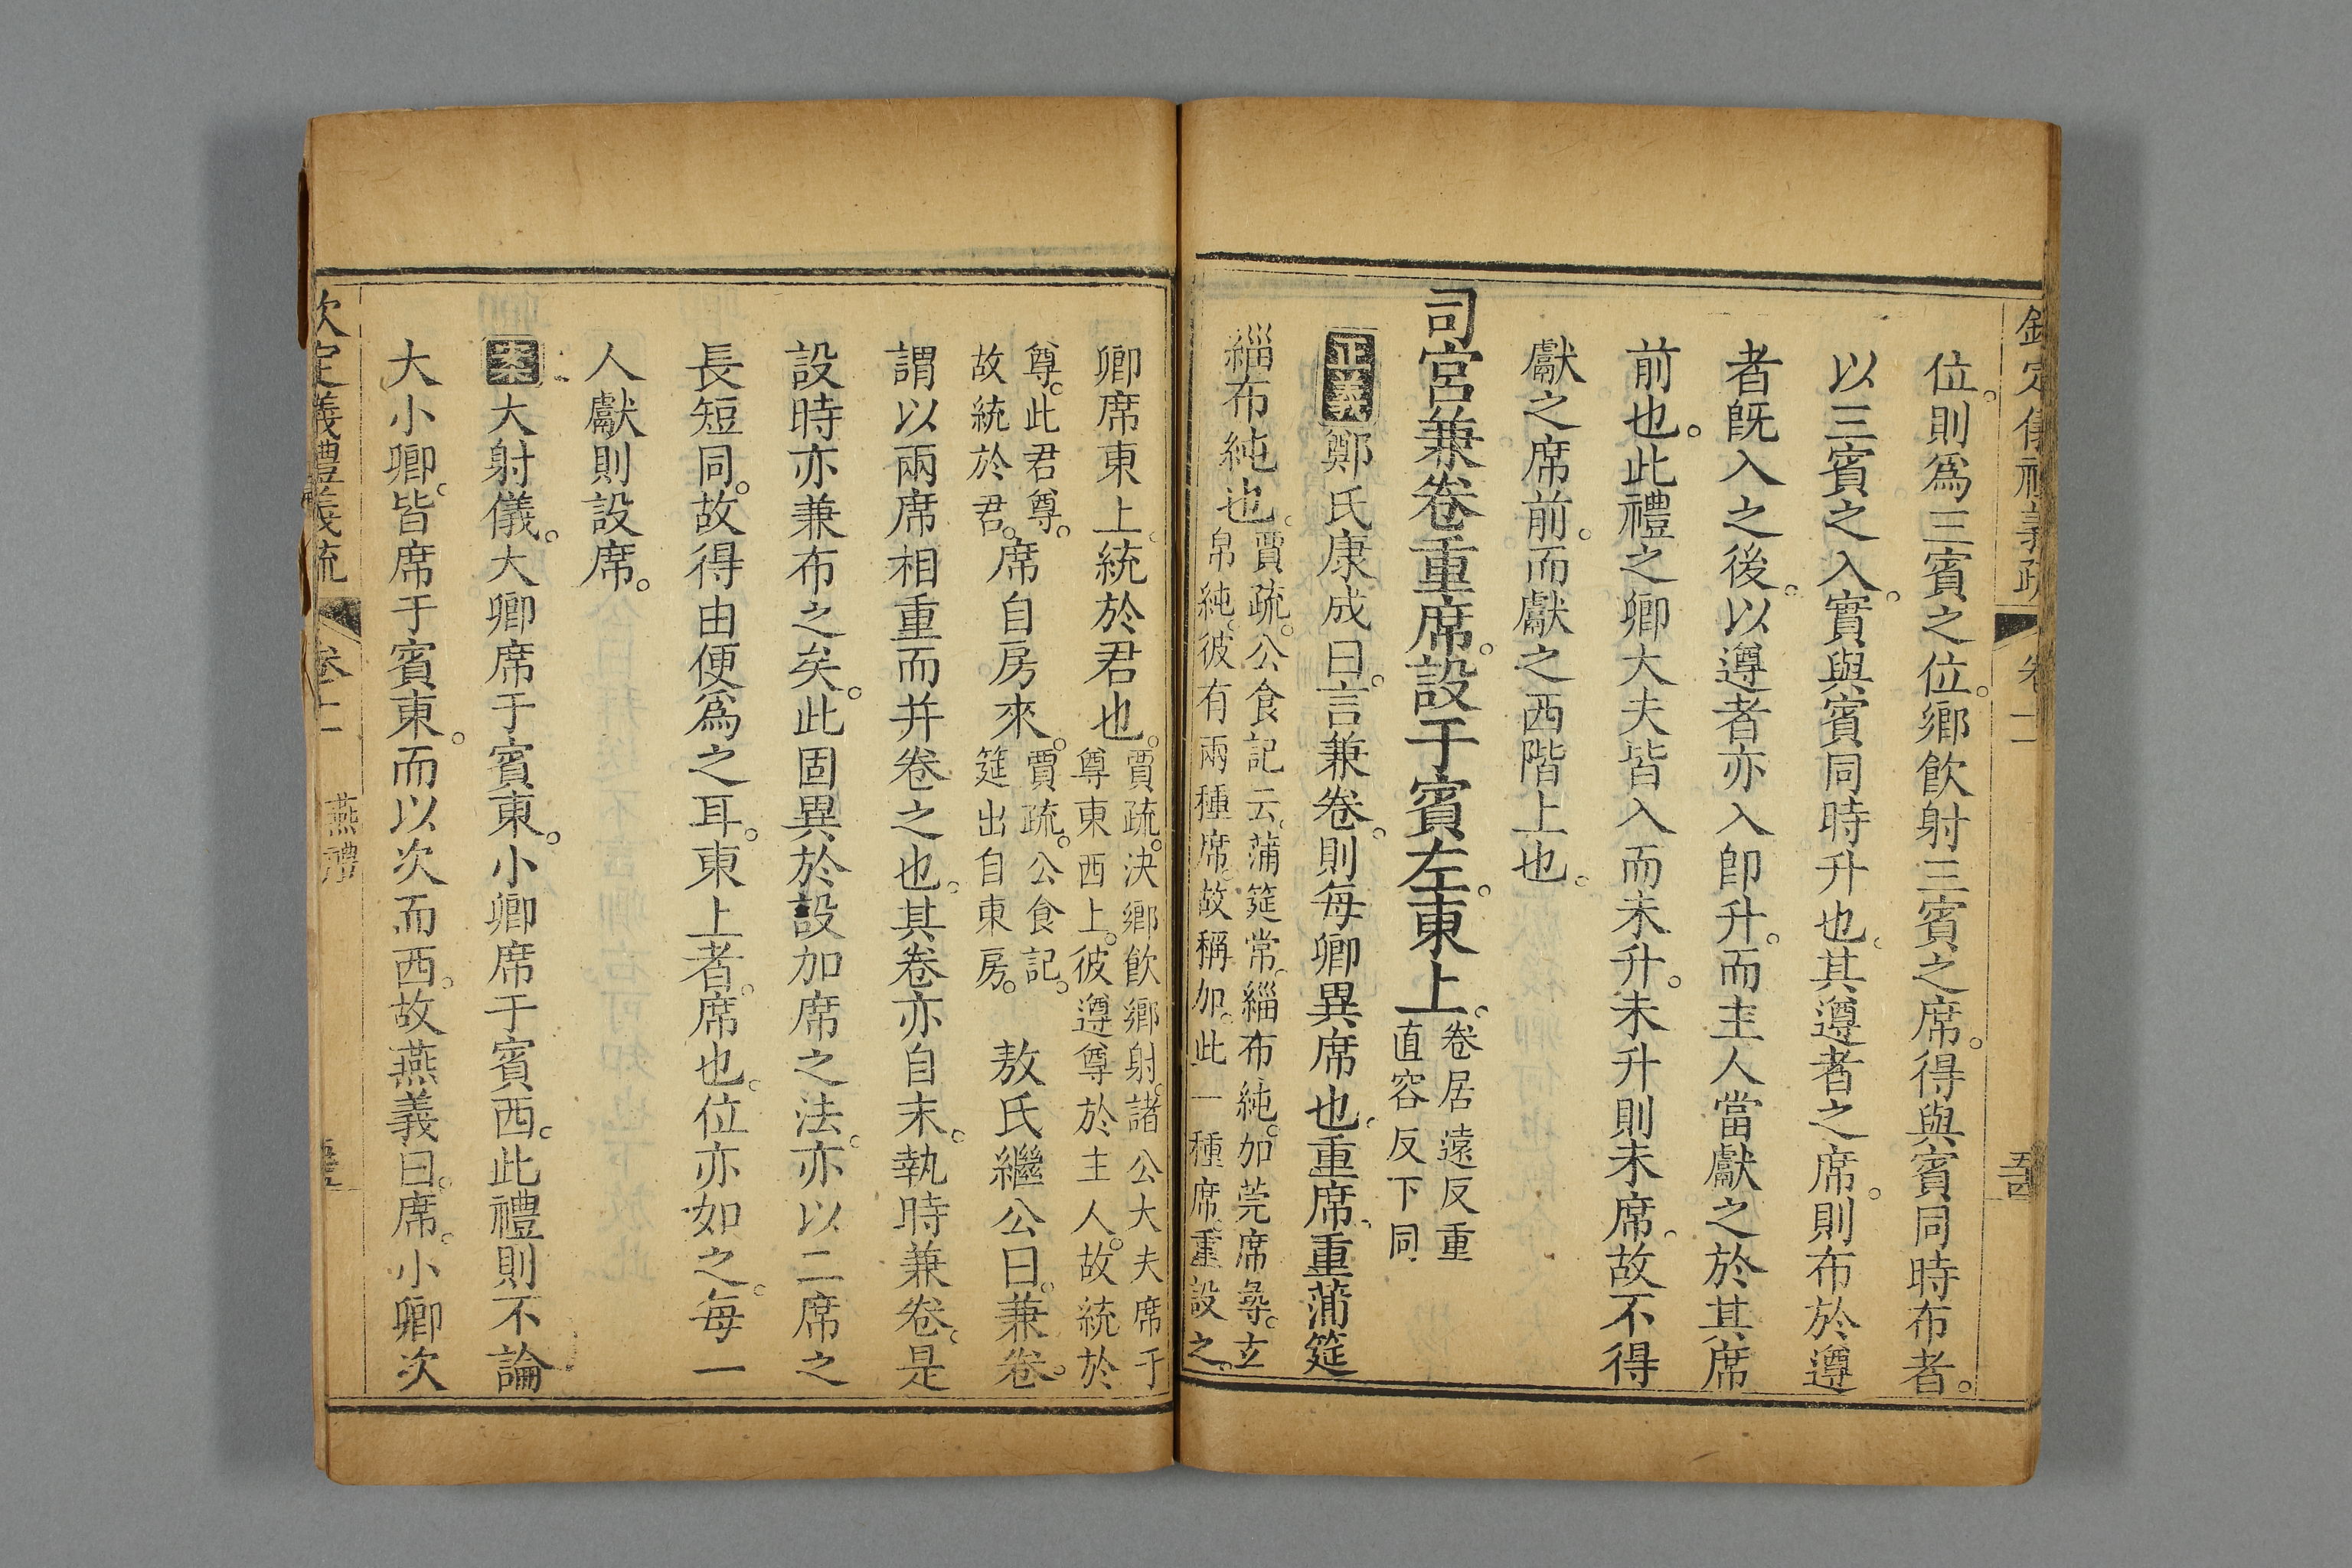 位。則爲三賓之位。鄉飮射三賓之席。得與賓同時布者。
以三賓之入。實與賓同時升也。其遵者之席。則布於遵
者旣入之後。以遵者亦入卽升。而主人當獻之於其席
前也。此禮之卿大夫皆入而未升。未升則未席。故不得
獻之席前。而獻之西階上也。
司宮兼卷重席。設于賓左。東上。卷居遠反重
直容反下同
正義鄭氏康成曰。言兼卷。則每卿異席也。重席。重蒲筵
緇布純也。賈疏。公食記云。蒲筵常。緇布純。加莞席尋。玄
帛純。彼有兩種席。故稱加。此一種席。重設之。
卿席東上。統於君也。賈疏。決鄉飮鄉射。諸公大夫席于
尊東西上。彼遵尊於主人。故統於
尊。此君尊。
故統於君。席自房來。賈疏。公食記。
筵出自東房。 敖氏繼公曰。兼卷。
謂以兩席相重而并卷之也。其卷亦自末。執時兼卷。是
設時亦兼布之矣。此固異於設加席之法。亦以二席之
長短同。故得由便爲之耳。東上者。席也。位亦如之。每一
人獻則設席。
案大射儀。大卿席于賓東。小卿席于賓西。此禮則不論
大小卿。皆席于賓東。而以次而西。故燕義曰。席。小卿次
欽定義禮義疏 卷十二 燕禮